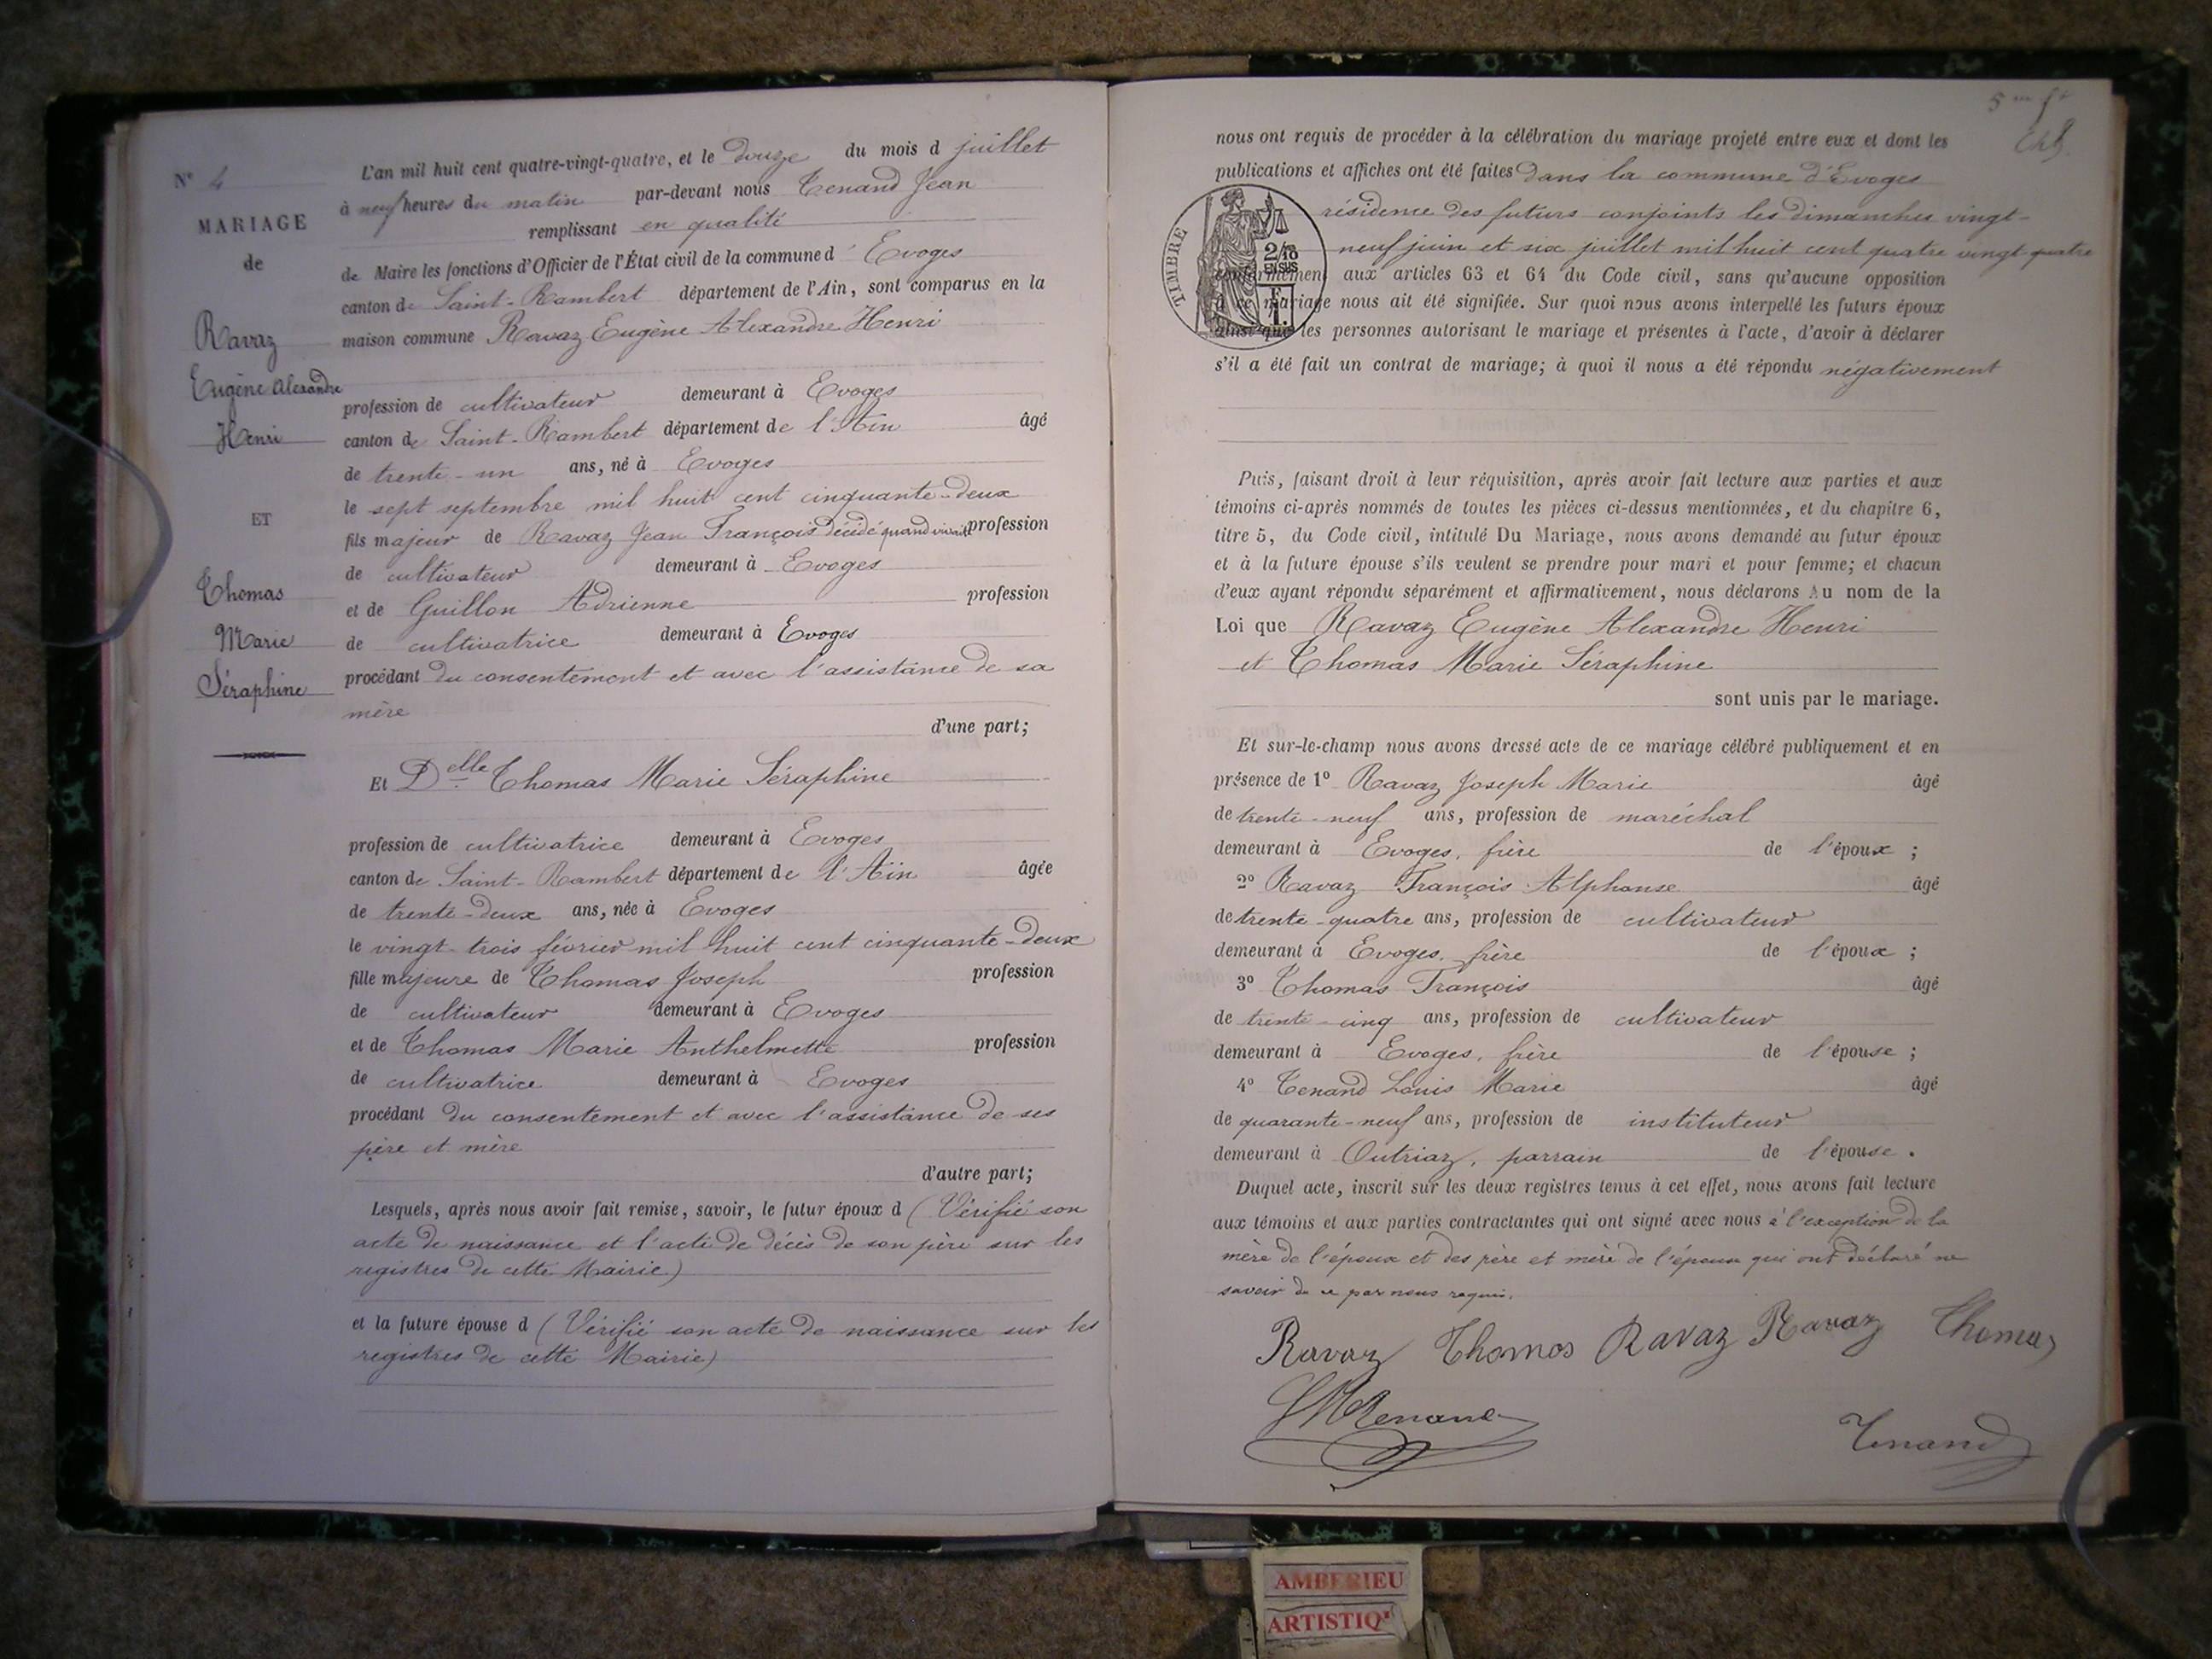 N° 4
MARIAGE
de
Ravaz
Eugène Alexandre
Henri
ET
Thomas
Marie
Séraphine
L'an mil huit cent quatre-vingt-quatre, et le douze du mois d juillet
à neuf heures du matin par-devant nous Tenand Jean
remplissant en qualité
de Maire les fonctions d'Officier de l'État civil de la commune d' Evoges
canton de Saint-Rambert département de l'Ain, sont comparus en la
maison commune Ravaz Eugène Alexandre Henri
profession de cultivateur demeurant à Evoges
canton de Saint-Rambert département de l'Ain âgé
de trente-un ans, né à Evoges
le sept septembre mil huit cent cinquante-deux
fils majeur de Ravaz Jean François décédé quand vivait profession
de cultivateur demeurant à Evoges
et de Guillon Adrienne profession
de cultivatrice demeurant à Evoges
procédant du consentement et avec l'assistance de sa
mère
d'une part;
Et Delle Thomas Marie Séraphine
profession de cultivatrice demeurant à Evoges
canton de Saint-Rambert département de l'Ain âgée
de trente-deux ans, née à Evoges
le vingt-trois février mil huit cent cinquante-deux
fille majeure de Thomas Joseph profession
de cultivateur demeurant à Evoges
et de Thomas Marie Anthelmette profession
de cultivatrice demeurant à Evoges
procédant du consentement et avec l'assistance de ses
père et mère
d'autre part;
Lesquels, après nous avoir fait remise, savoir, le futur époux d (Vérifié son
acte de naissance et l'acte de décès de son père sur les
registres de cette Mairie)
et la future épouse d (Vérifié son acte de naissance sur les
registres de cette Mairie)
nous ont requis de procéder à la célébration du mariage projeté entre eux et dont les
publications et affiches ont été faites dans la commune d'Evoges
résidence des futurs conjoints les dimanches vingt-
neuf juin et six juillet mil huit cent quatre vingt-quatre
TIMBRE
2/10
EN SUS
conformément aux articles 63 et 64 du Code civil, sans qu'aucune opposition
à ce mariage nous ait été signifiée. Sur quoi nous avons interpellé les futurs époux
ainsi que les personnes autorisant le mariage et présentes à l'acte, d'avoir à déclarer
s'il a été fait un contrat de mariage; à quoi il nous a été répondu négativement
Puis, faisant droit à leur réquisition, après avoir fait lecture aux parties et aux
témoins ci-après nommés de toutes les pièces ci-dessus mentionnées, et du chapitre 6,
titre 5, du Code civil, intitulé Du Mariage, nous avons demandé au futur époux
et à la future épouse s'ils veulent se prendre pour mari et pour femme; et chacun
d'eux ayant répondu séparément et affirmativement, nous déclarons Au nom de la
Loi que Ravaz Eugène Alexandre Henri
et Thomas Marie Séraphine
sont unis par le mariage.
Et sur-le-champ nous avons dressé acte de ce mariage célébré publiquement et en
présence de 1° Ravaz Joseph Marie âgé
de trente-neuf ans, profession de maréchal
demeurant à Evoges, frère de l'époux ;
2° Ravaz François Alphonse âgé
de trente-quatre ans, profession de cultivateur
demeurant à Evoges, frère de l'époux ;
3° Thomas François âgé
de trente-cinq ans, profession de cultivateur
demeurant à Evoges, frère de l'épouse ;
4° Tenand Louis Marie âgé
de quarante-neuf ans, profession de instituteur
demeurant à Outriaz, parrain de l'épouse.
Duquel acte, inscrit sur les deux registres tenus à cet effet, nous avons fait lecture
aux témoins et aux parties contractantes qui ont signé avec nous à l'exception de la
mère de l'époux et des père et mère de l'épouse qui ont déclaré ne
savoir de ce par nous requis.
Ravaz Thomas Ravaz Ravaz Thomas
LMTenand
Tenand
AMBERIEU
ARTISTIQ